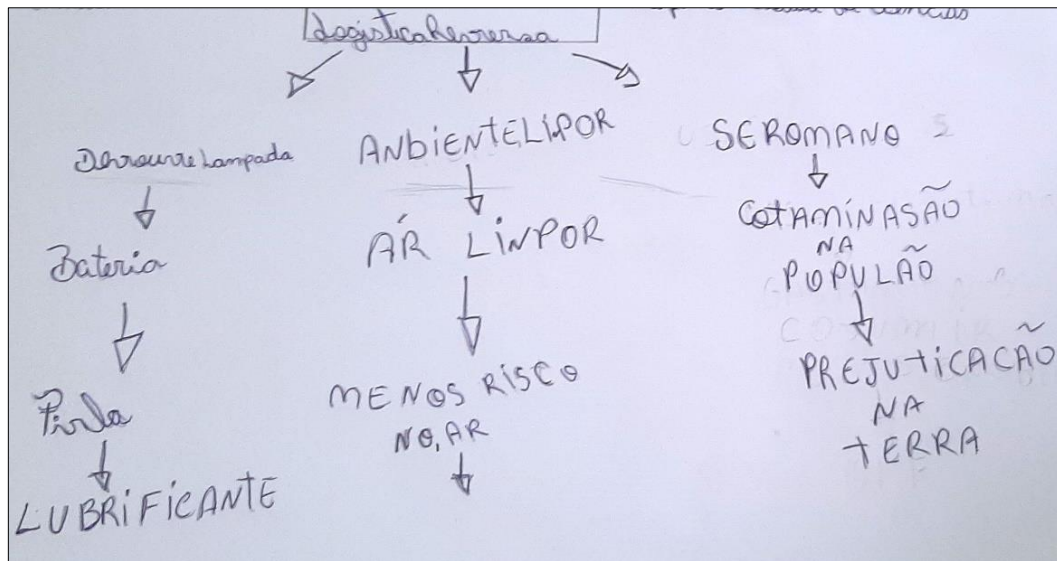 LogísticaReversa
Lampada
Bateria
Pilha
LUBRIFICANTE
ANBIENTELIPOR
ÁR LINPOR
MENOS RISCO
NO, AR
SEROMANO
COTAMINASÃO
NA
POPULÃO
PREJUTICACÃO
NA
TERRA